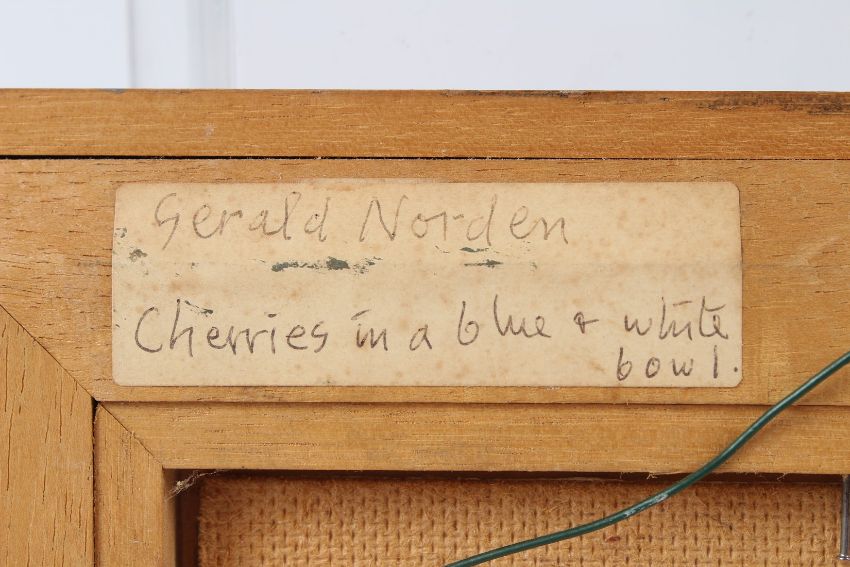 Gerald Norden
Cherries in a blue & white
bowl.